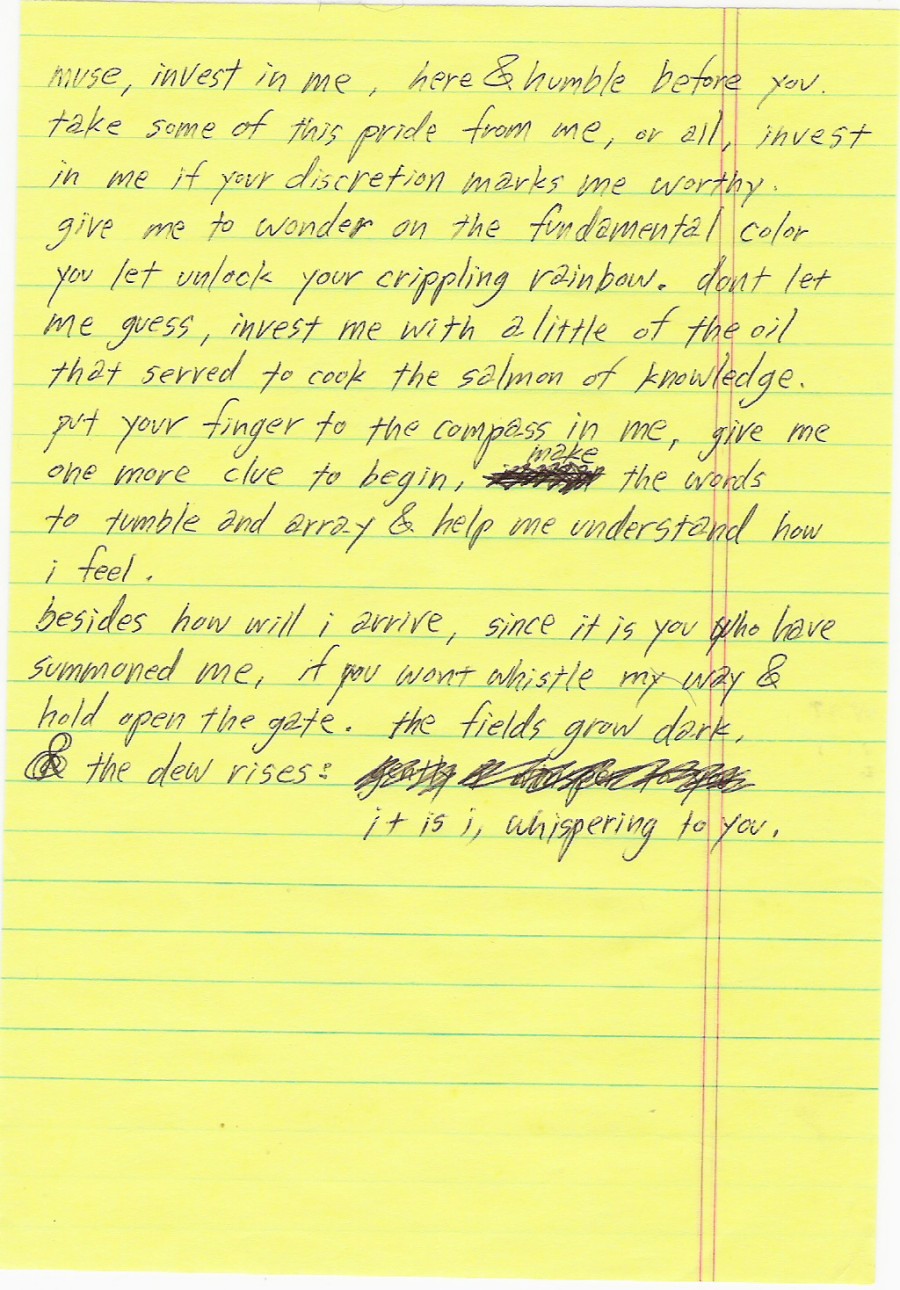 muse, invest in me, here & humble before you.
take some of this pride from me, or all, invest
in me if your discretion marks me worthy.
give me to wonder on the fundamental color
you let unlock your crippling rainbow. dont let
me guess, invest me with a little of the oil
that served to cook the salmon of knowledge.
put your finger to the compass in me, give me
make
one more clue to begin, the words
to tumble and array & help me understand how
i feel.
besides how will i arrive, since it is you who have
summoned me, if you wont whistle my way &
hold open the gate. the fields grow dark,
& the dew rises:
it is i, whispering to you.